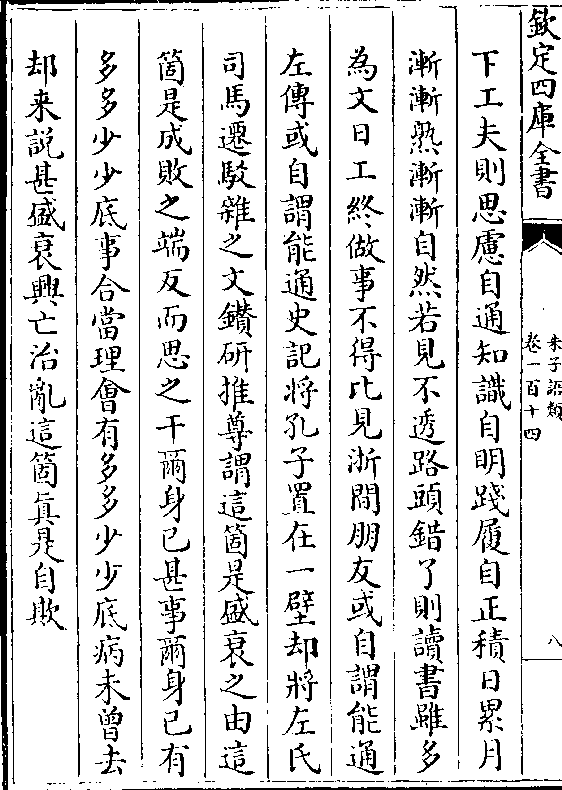 欽定四庫全書
朱子語類
卷一百十四
八
下工夫則思慮自通知識自明踐履自正積日累月
漸漸熟漸漸自然若見不透路頭錯了則讀書雖多
為文日工終做事不得比見浙間朋友或自謂能通
左傳或自謂能通史記將孔子置在一壁却將左氏
司馬遷駁雜之文鑽研推尊謂這箇是盛衰之由這
箇是成敗之端反而思之干爾身已甚事爾身已有
多多少少底事合當理會有多多少少底病未曾去
却来說甚盛衰興亡治亂這箇真是自欺